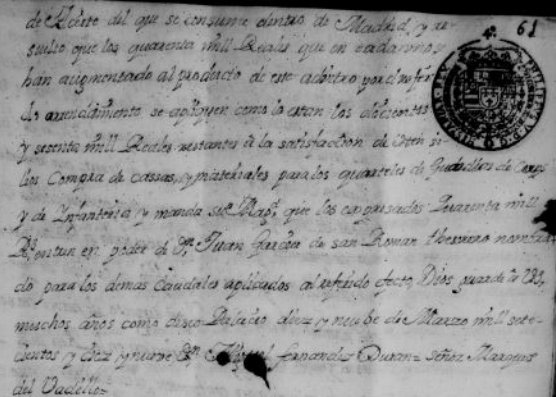 61
de Aceite del que se consume dentro de Madrid, y re
suelto que los quarenta mill Reales que en cada un año
han augmentado al producto de este adbitrio por el refer
do arrendamiento se apliquen como lo estan los doscientos
y sesenta mill Reales restantes à la satisfaction de
Compra de cassas, y materiales para los quarteles de Guardias de Corps
y de Infanteria y manda su Magd. que los expresados Quarenta mill
Rs. entren en poder de Dn. Juan Garcia de san Roman thesorero nombra
do para los demas Caudales aplicados al referido efecto, Dios guarde à
muchos años como deseo Palacio diez y nueve de Marzo mill sete
cientos y diez y nueve Dn. Miguel fernandez Duran= señor Marques
del Vadillo=